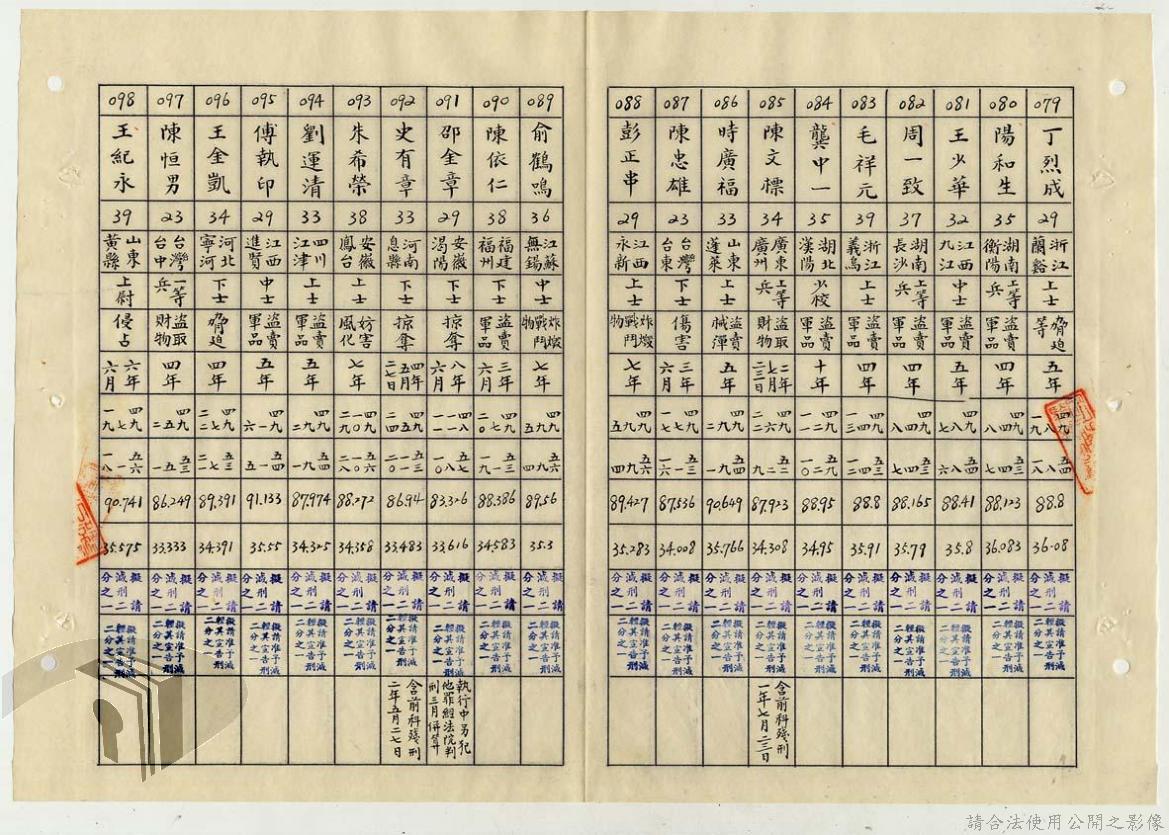 079 丁烈成 29 浙江蘭谿 上士 脅迫等 五年 四九八一九 五四八一八 88.8 36.08 擬請減刑二分之一 擬請准予減輕其宣告刑二分之一
080 陽和生 35 湖南衡陽 上等兵 盜賣軍品 四年 四九四八 五三四七 88.123 36.083 擬請減刑二分之一 擬請准予減輕其宣告刑二分之一
081 王少華 32 江西九江 下士 盜賣軍品 五年 四九八七 五四八六 88.41 35.8 擬請減刑二分之一 擬請准予減輕其宣告刑二分之一
082 周一致 37 湖南長沙 上等兵 盜賣軍品 四年 四九四八 五三四七 88.165 35.79 擬請減刑二分之一 擬請准予減輕其宣告刑二分之一
083 毛祥元 39 浙江義烏 上士 盜賣軍品 四年 四九四一三 五三四一二 88.8 35.91 擬請減刑二分之一 擬請准予減輕其宣告刑二分之一
084 龔中一 35 湖北漢陽 少校 盜賣軍品 十年 四九二一一 五九二一〇 88.95 34.95 擬請減刑二分之一 擬請准予減輕其宣告刑二分之一
085 陳文標 34 廣東廣州 上等兵 盜取財物 二年七月二三日 四九九二六 87.923 34.308 擬請減刑二分之一 擬請准予減輕其宣告刑二分之一 含前科殘刑一年七月二三日
086 時廣福 33 山東蓬萊 下士 盜賣械彈 五年 四九二 五四一九 90.649 35.766 擬請減刑二分之一 擬請准予減輕其宣告刑二分之一
087 陳忠雄 23 台灣台東 下士 傷害 三年六月 四九七一七 五三一一六 87.536 34.008 擬請減刑二分之一 擬請准予減輕其宣告刑二分之一
088 彭正串 29 江西永新 上士 炸燬戰鬥物 七年 四九九五 五六九四 89.427 35.283 擬請減刑二分之一 擬請准予減輕其宣告刑二分之一
089 俞鶴鳴 36 江蘇無錫 中士 炸燬戰鬥物 七年 四九九五 五六九四 89.56 35.3 擬請減刑二分之一 擬請准予減輕其宣告刑二分之一
090 陳依仁 38 福建福州 上士 盜賣軍品 三年六月 四九七二〇 五三一一九 88.386 34.583 擬請減刑二分之一 擬請准予減輕其宣告刑二分之一
091 邵金章 29 安徽渦陽 下士 掠奪 八年六月 83.326 33.616 擬請減刑二分之一 擬請准予減輕其宣告刑二分之一 執行中另犯他罪經法院判刑三月併算
092 史有章 33 河南息縣 下士 掠奪 四年五月二七日 86.94 33.483 擬請減刑二分之一 擬請准予減輕其宣告刑二分之一 含前科殘刑二年五月二七日
093 朱希榮 38 安徽鳳台 上士 妨害風化 七年 四九一〇二九 五六一〇二八 88.272 34.358 擬請減刑二分之一 擬請准予減輕其宣告刑二分之一
094 劉運清 33 四川江津 上士 盜賣軍品 五年 四九九二 五四九一 87.974 34.325 擬請減刑二分之一 擬請准予減輕其宣告刑二分之一
095 傅執印 29 江西進賢 中士 盜賣軍品 五年 四九一六 五四一五 91.133 35.55 擬請減刑二分之一 擬請准予減輕其宣告刑二分之一
096 王金凱 34 河北寧河 下士 脅迫 四年 四九七二二 五三七二一 89.391 34.391 擬請減刑二分之一 擬請准予減輕其宣告刑二分之一
097 陳恒男 23 台灣台中 一等兵 盜取財物 四年 四九五二 五三五一 86.249 33.333 擬請減刑二分之一 擬請准予減輕其宣告刑二分之一
098 王紀永 39 山東黃縣 上尉 侵占 六年六月 四九七一九 五六一一八 90.741 35.575 擬請減刑二分之一 擬請准予減輕其宣告刑二分之一
請合法使用公開之影像